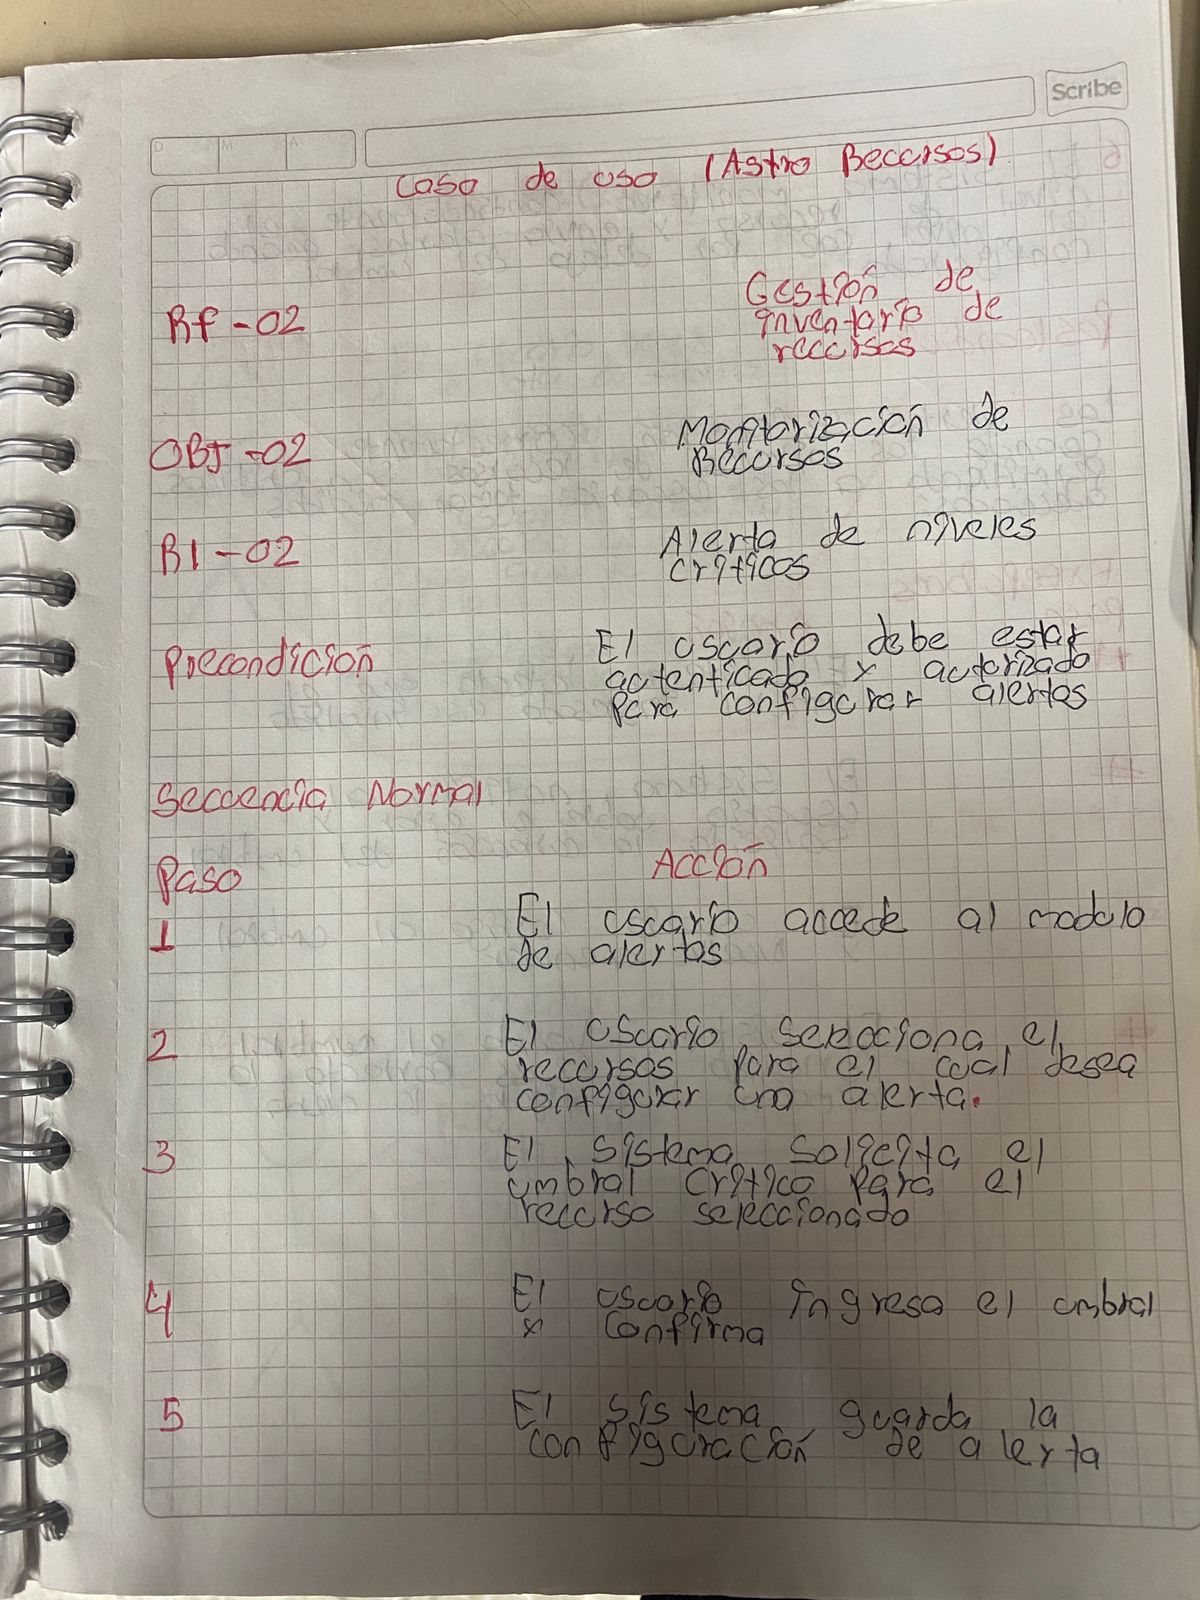 Scribe
D M A
Caso de uso (Astro Recursos)
Rf-02 Gestión de
inventario de
recursos
OBJ-02 Monitorización de
Recursos
RI-02 Alerta de niveles
criticos
Precondición El usuario debe estar
autenticado y autorizado
para configurar alertas
Secuencia Normal
Paso Acción
1 El usuario accede al modulo
de alertas
2 El usuario selecciona el
recursos para el cual desea
configurar una alerta.
3 El sistema solicita el
umbral critico para el
recurso seleccionado
4 El usuario ingresa el umbral
y confirma
5 El sistema guarda la
configuración de alerta